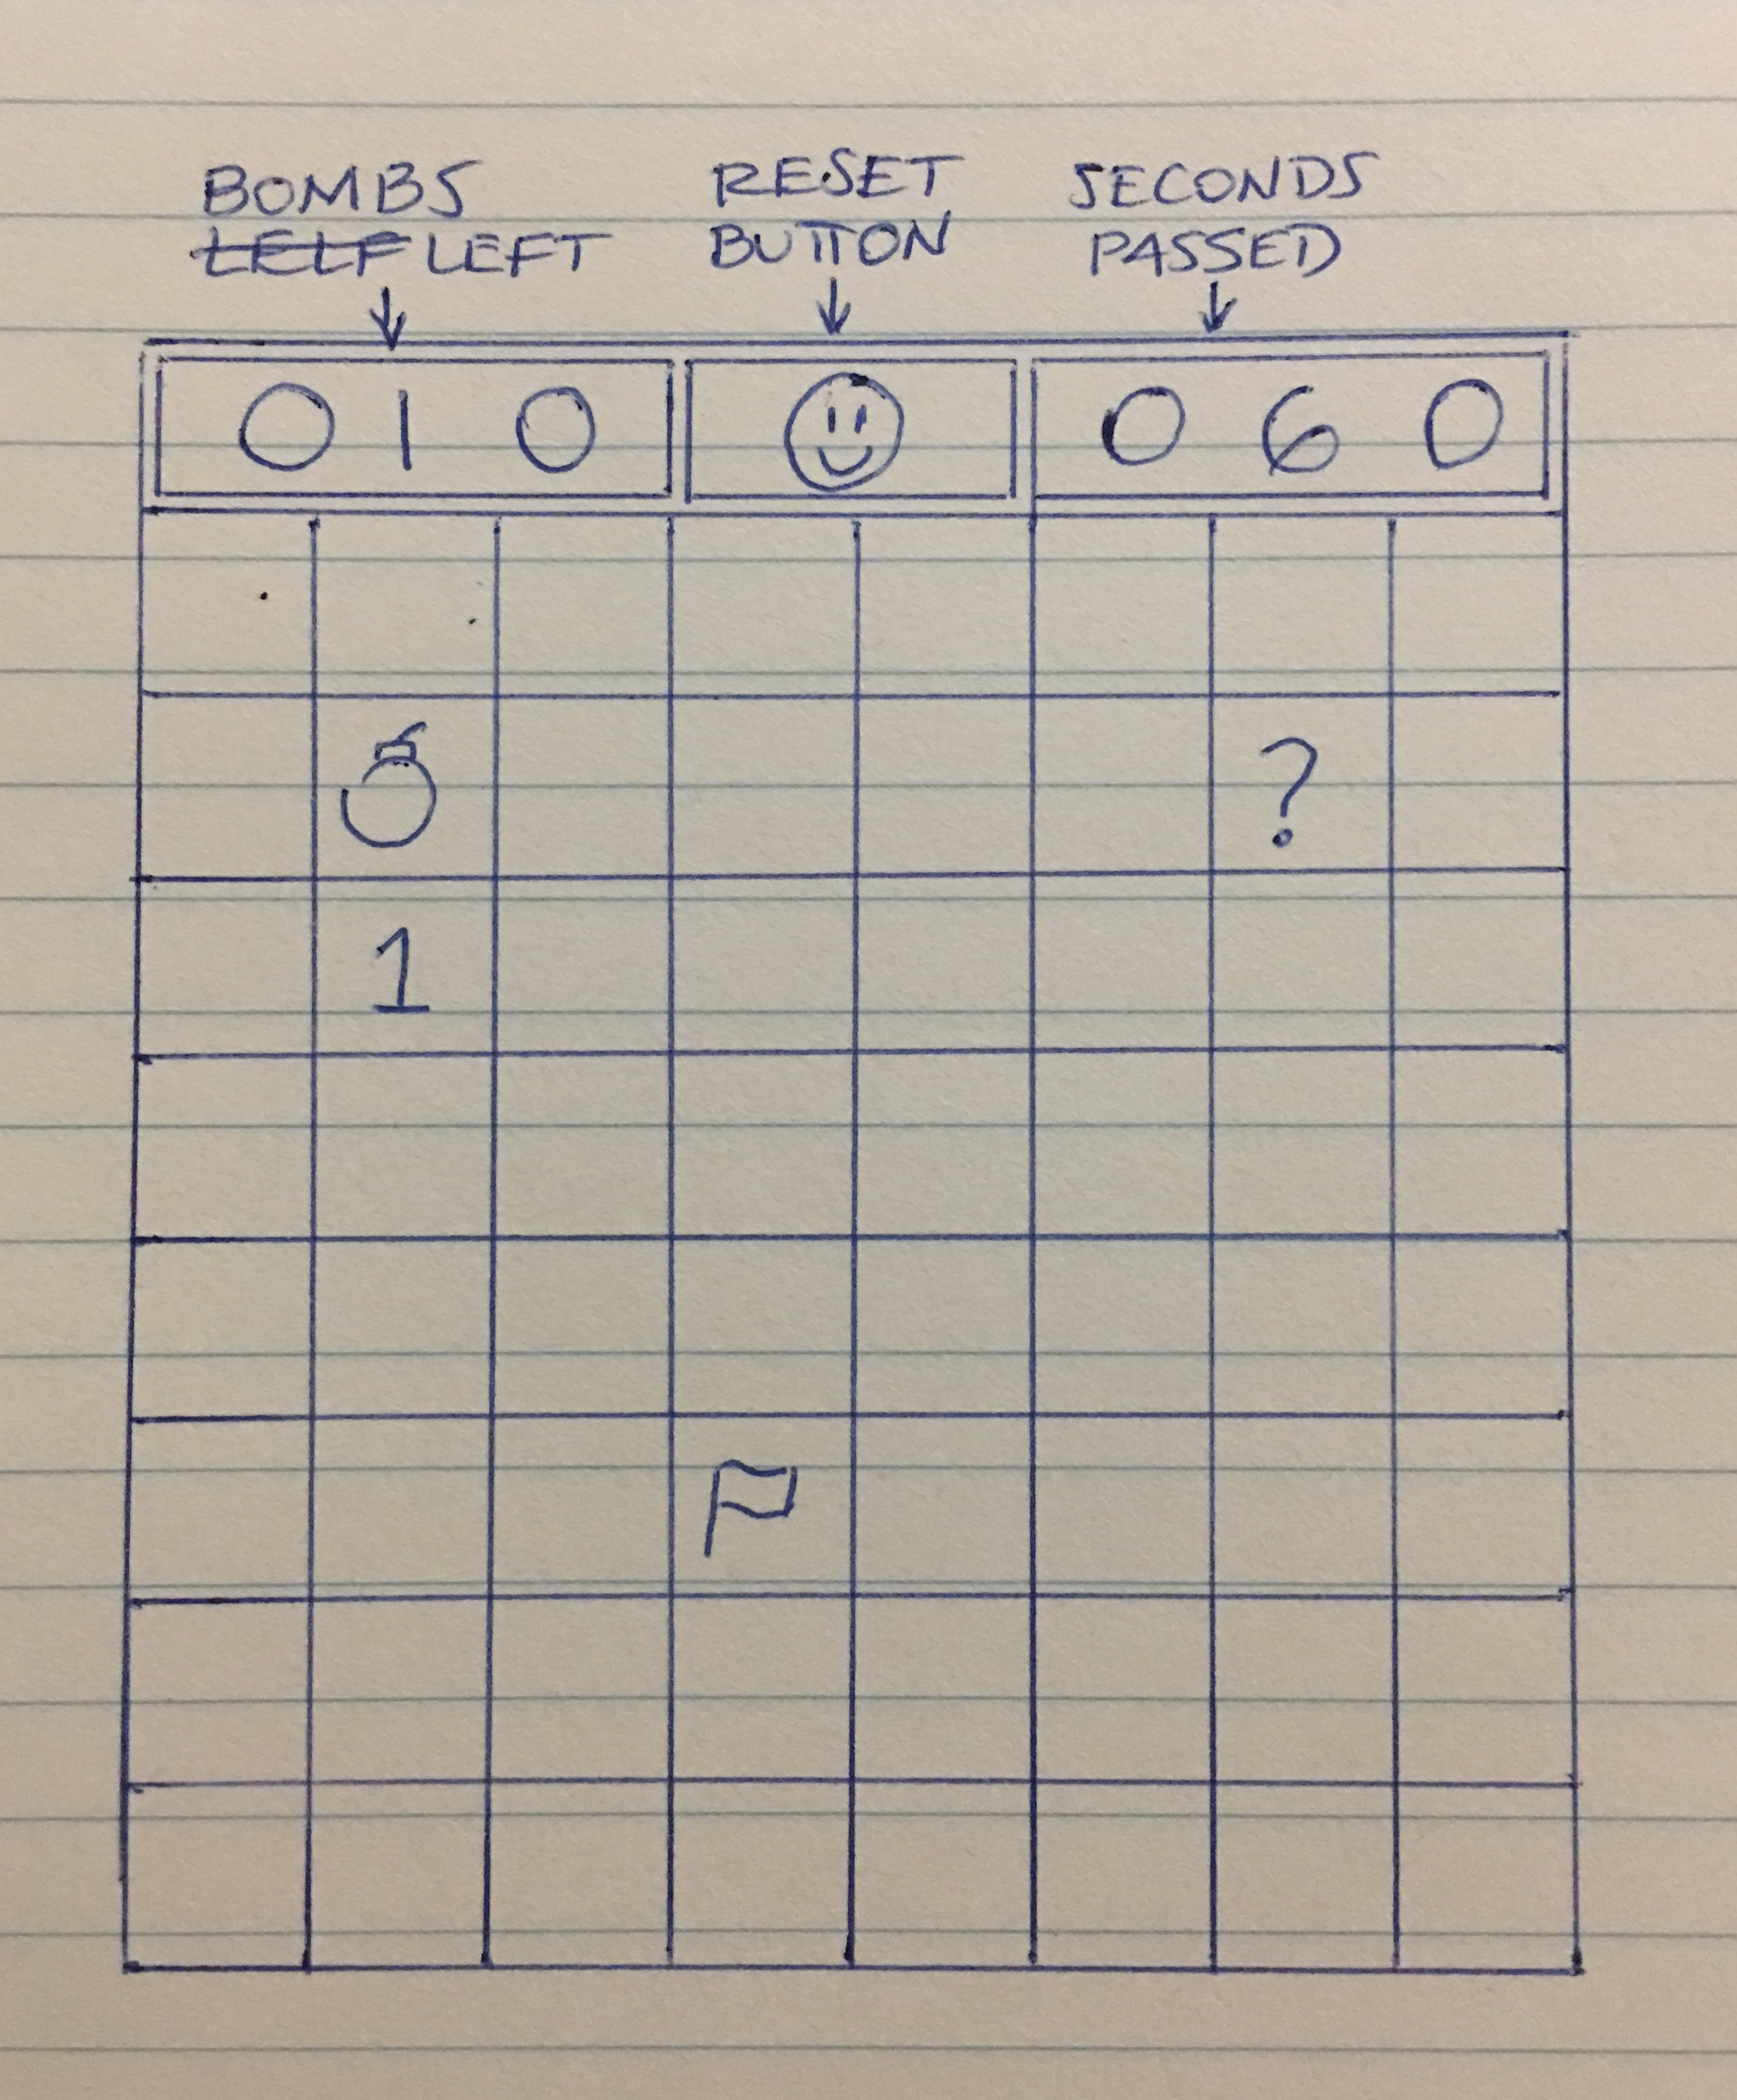 BOMBS
LELF LEFT
RESET
BUTTON
SECONDS
PASSED
010
060
?
1